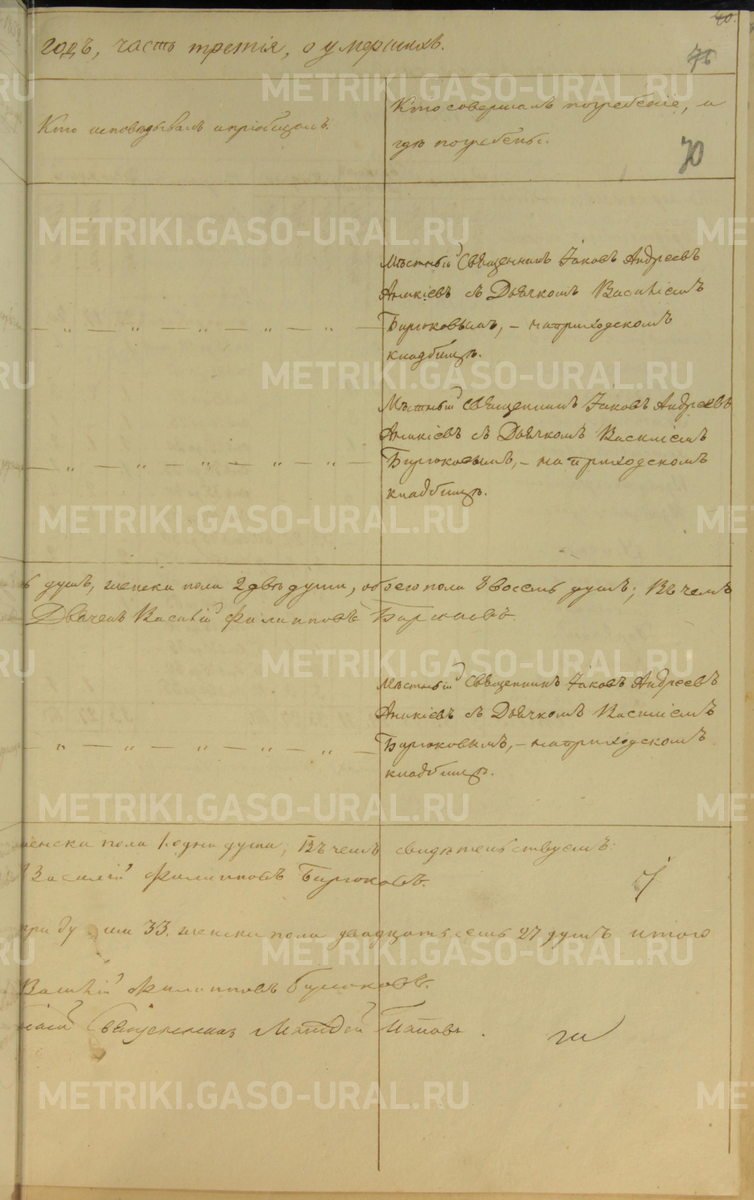 40.
годъ, часть третія, о умершихъ.
76
Кто исповѣдывалъ и пріобщалъ.
Кто совершалъ погребеніе, и
гдѣ погребены.
70
Мѣстный Священникъ Іаковъ Андреевъ
Аникіевъ съ Дьячкомъ Василіемъ
— „ — „ — „ — „ — „ — Бирюковымъ, – на приходскомъ
кладбищѣ.
Мѣстный Священникъ Іаковъ Андреевъ
Аникіевъ съ Дьячкомъ Василіемъ
— „ — „ — „ — „ — „ — Бирюковымъ, – на приходскомъ
кладбищѣ.
ь душъ, женска пола 2 двѣ души, обоего пола 8 восемь душъ; Въ чемъ
Дьячекъ Василій Филипповъ Бирюковъ
Мѣстный Священникъ Іаковъ Андреевъ
Аникіевъ съ Дьячкомъ Василіемъ
— „ — „ — „ — „ — „ — Бирюковымъ, – на приходскомъ
кладбищѣ.
женска пола 1. одна душа; Въ чемъ свидѣтельствуемъ:
Василій Филипповъ Бирюковъ.
три ду ши 33. женска пола двадцать семь 27 душъ итого
Василій Филипповъ Бирюковъ.
Священникъ Поповъ.
METRIKI.GASO-URAL.RU